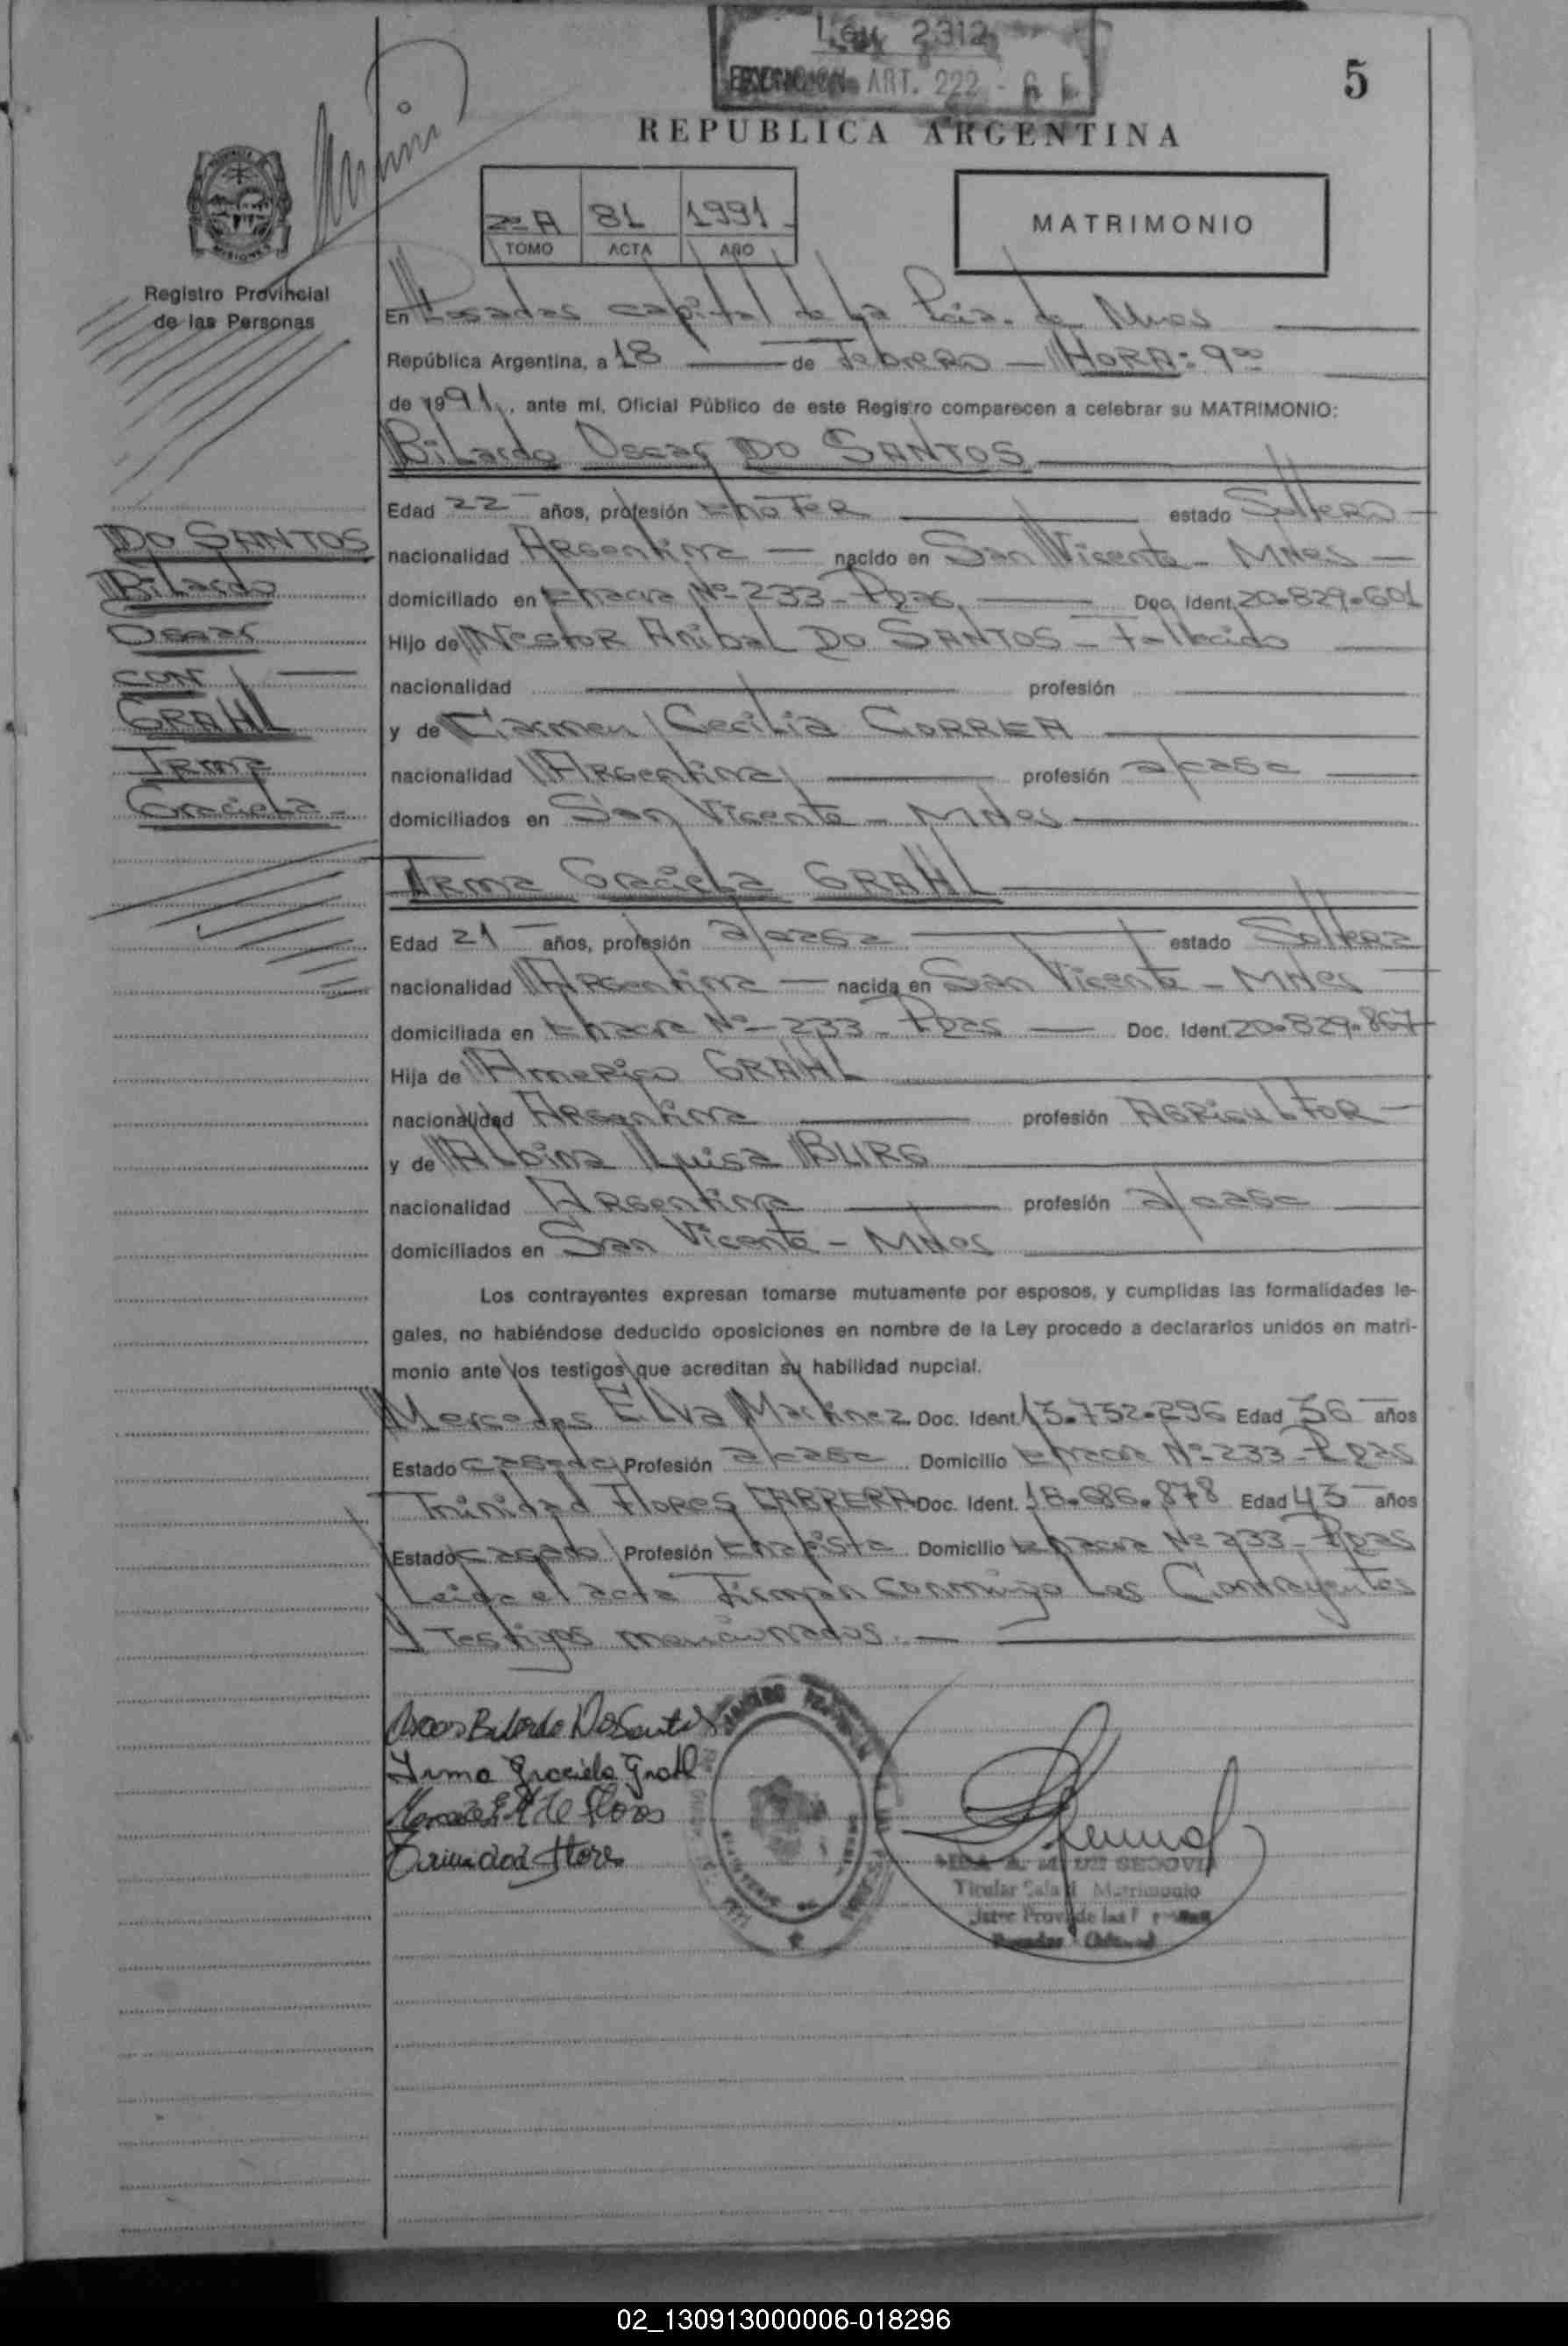 Ley 2312
EXENCION ART. 222
5
REPUBLICA ARGENTINA
2º A 81 1991
TOMO ACTA AÑO
MATRIMONIO
PROVINCIA DE MISIONES
Registro Provincial
de las Personas
En Posadas capital de la Pcia. de Mnes
República Argentina, a 18 de Febrero - HORA: 9 00
de 1991, ante mí, Oficial Público de este Registro comparecen a celebrar su MATRIMONIO:
Bilardo Oscar DO SANTOS
Edad 22 años, profesión chofer estado Soltero
nacionalidad Argentina nacido en San Vicente - Mnes
domiciliado en Chacra Nº 233 - Pdas. Doc. Ident. 20.829.601
Hijo de Nestor Anibal DO SANTOS - Fallecido
nacionalidad profesión
y de Carmen Cecilia CORREA
nacionalidad Argentina profesión a/casa
domiciliados en San Vicente - Mnes
Irma Graciela GRAHL
Edad 21 años, profesión a/casa estado Soltera
nacionalidad Argentina nacida en San Vicente - Mnes
domiciliada en Chacra Nº 233 - Pdas Doc. Ident. 20.829.867
Hija de Americo GRAHL
nacionalidad Argentina profesión Agricultor
y de Albina Luisa BURG
nacionalidad Argentina profesión a/casa
domiciliados en San Vicente - Mnes
Los contrayentes expresan tomarse mutuamente por esposos, y cumplidas las formalidades le-
gales, no habiéndose deducido oposiciones en nombre de la Ley procedo a declararlos unidos en matri-
monio ante los testigos que acreditan su habilidad nupcial.
Mercedes Elva Martinez Doc. Ident. 13.732.296 Edad 36 años
Estado casada Profesión a/casa Domicilio Chacra Nº 233 - Pdas
Trinidad Flores CABRERA Doc. Ident. 18.686.878 Edad 43 años
Estado casado Profesión chapista Domicilio Chacra Nº 233 - Pdas
Leida el acta firman conmigo los Contrayentes
y testigos mencionados.
DO SANTOS
Bilardo
Oscar
con
GRAHL
Irma
Graciela
Oscar Bilardo Do Santos
Irma Graciela Grahl
de Flores
Trinidad Flores
DE SEGOVIA
Titular Sala Matrimonio
Prov. de las
Posadas
02_130913000006-018296